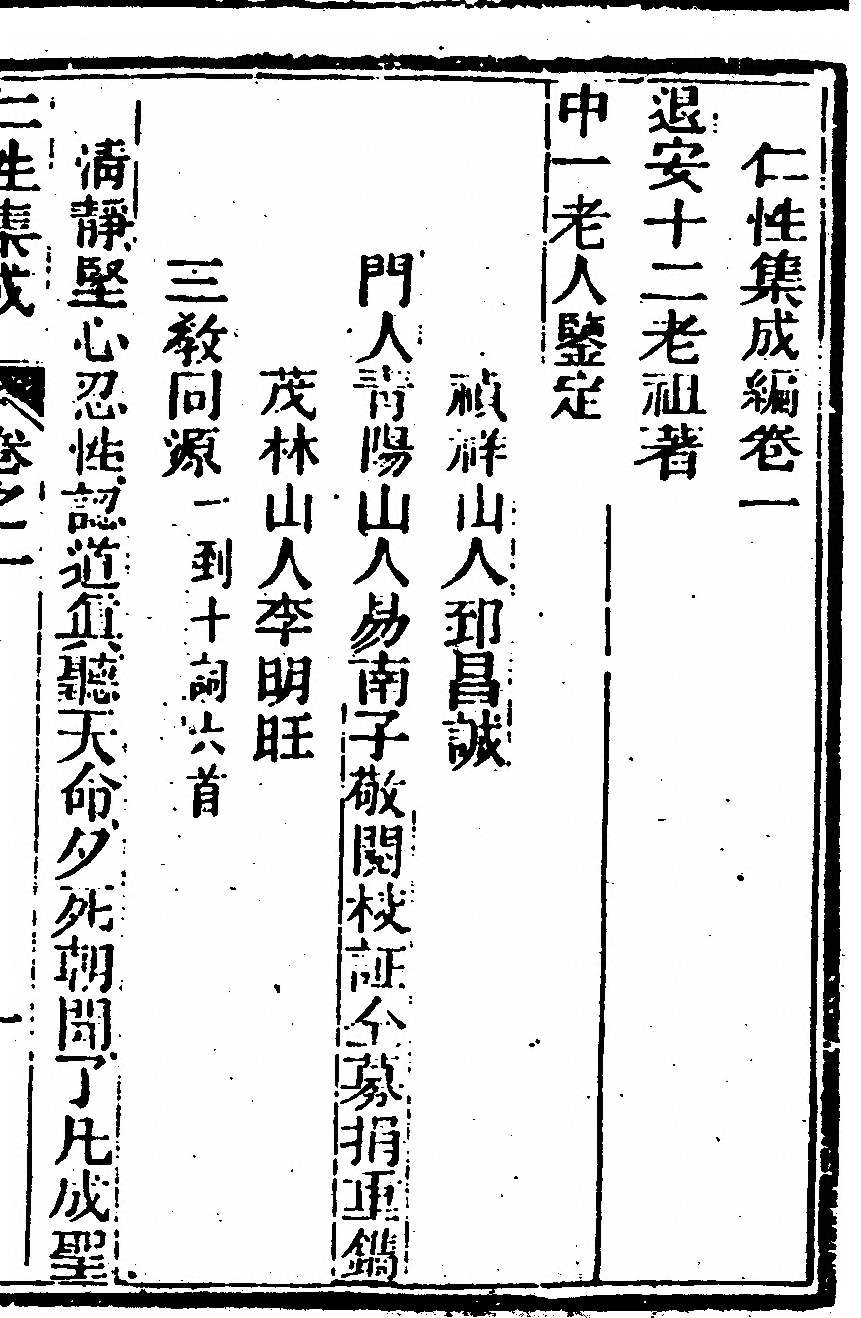 仁性集成編卷一
退安十二老祖著
中一老人鑒定
禎祥山人郅昌誠
門人青陽山人易南子敬閱校証仝募捐重鐫
茂林山人李明旺
三教同源 一到十詞六首
清靜堅心忍性認道眞聽天命夕死朝聞了凡成聖
仁性集成 卷之一 一